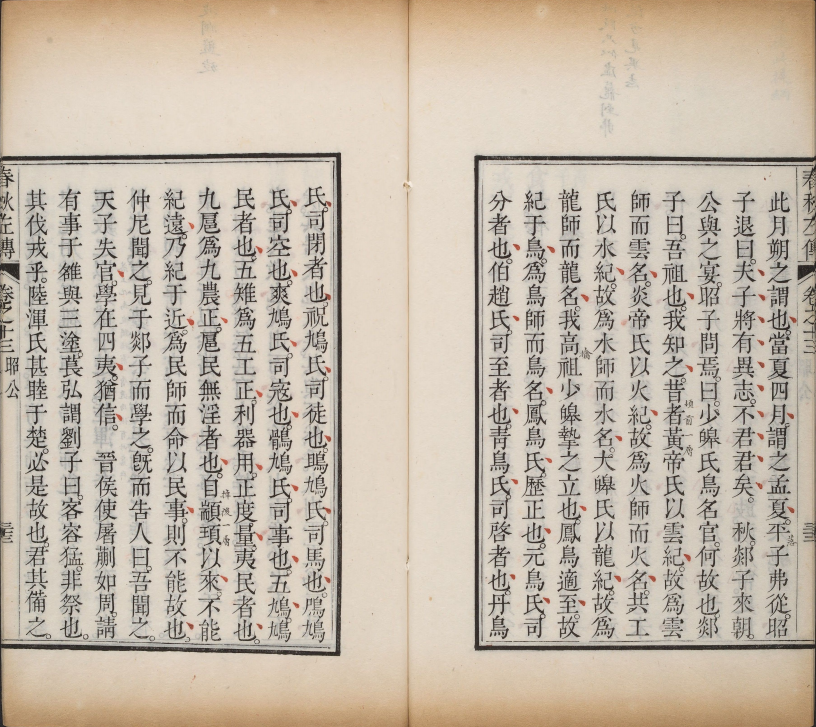 春秋左傳 卷之十三 昭公 三三
此月朔之謂也。當夏四月。謂之孟夏。平子弗從。昭
子退曰。夫子將有異志。不君君矣。 秋。郯子來朝。
公與之宴。昭子問焉。曰。少皞氏鳥名官。何故也。郯
子曰。吾祖也。我知之。昔者黃帝氏以雲紀。故爲雲
師而雲名。炎帝氏以火紀。故爲火師而火名。共工
氏以水紀。故爲水師而水名。大皞氏以龍紀。故爲
龍師而龍名。我高祖少皞摯之立也。鳳鳥適至。故
紀于鳥。爲鳥師而鳥名。鳳鳥氏。歷正也。元鳥氏。司
分者也。伯趙氏。司至者也。靑鳥氏。司啓者也。丹鳥
氏。司閉者也。祝鳩氏。司徒也。鴡鳩氏。司馬也。鳲鳩
氏。司空也。爽鳩氏。司寇也。鶻鳩氏。司事也。五鳩。鳩
民者也。五雉爲五工正。利器用。正度量。夷民者也。
九扈爲九農正。扈民無淫者也。自顓頊以來。不能
紀遠。乃紀于近。爲民師而命以民事。則不能故也。
仲尼聞之。見于郯子而學之。旣而告人曰。吾聞之。
天子失官。學在四夷。猶信。 晉侯使屠蒯如周。請
有事于雒與三塗。萇弘謂劉子曰。客容猛。非祭也。
其伐戎乎。陸渾氏甚睦于楚。必是故也。君其備之。
春秋左傳 卷之十三 昭公 三三